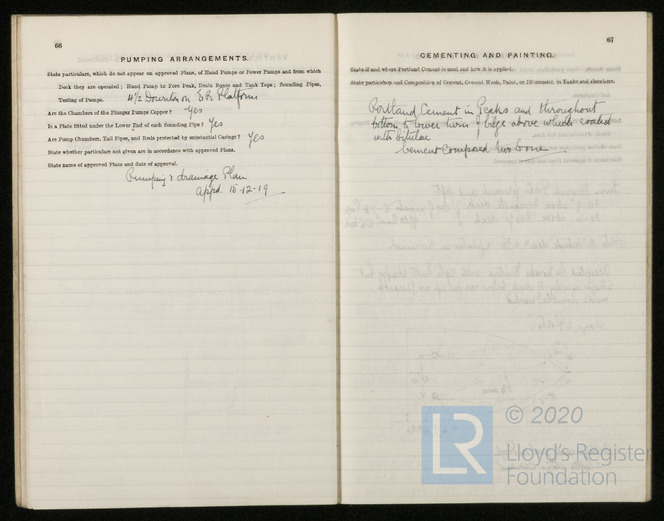 66
PUMPING ARRANGEMENTS.
State particulars, which do not appear on approved Plans, of Hand Pumps or Power Pumps and from which
Deck they are operated; Hand Pump to Fore Peak, Drain Pipes and Tank Tops; Sounding Pipes,
Testing of Pumps. 4½ Downton on Platform
Are the Chambers of the Plunger Pumps Copper? Yes
Is a Plate fitted under the Lower End of each Sounding Pipe? Yes
Are Pump Chambers, Tail Pipes, and Rods protected by substantial Casings? Yes
State whether particulars not given are in accordance with approved Plans.
State name of approved Plans and date of approval.
Pumping & drainage Plan
Appd. 15-12-19
67
CEMENTING AND PAINTING.
State if and where Portland Cement is used and how it is applied.
State particulars and Composition of Cement, Cement Wash, Paint, or Bitumastic, in Tanks and elsewhere.
Portland Cement in Peaks and throughout
bottom & lower turn of bilge above which coated
with
Cement Composed two to one
LR
© 2020
Lloyd's Register
Foundation